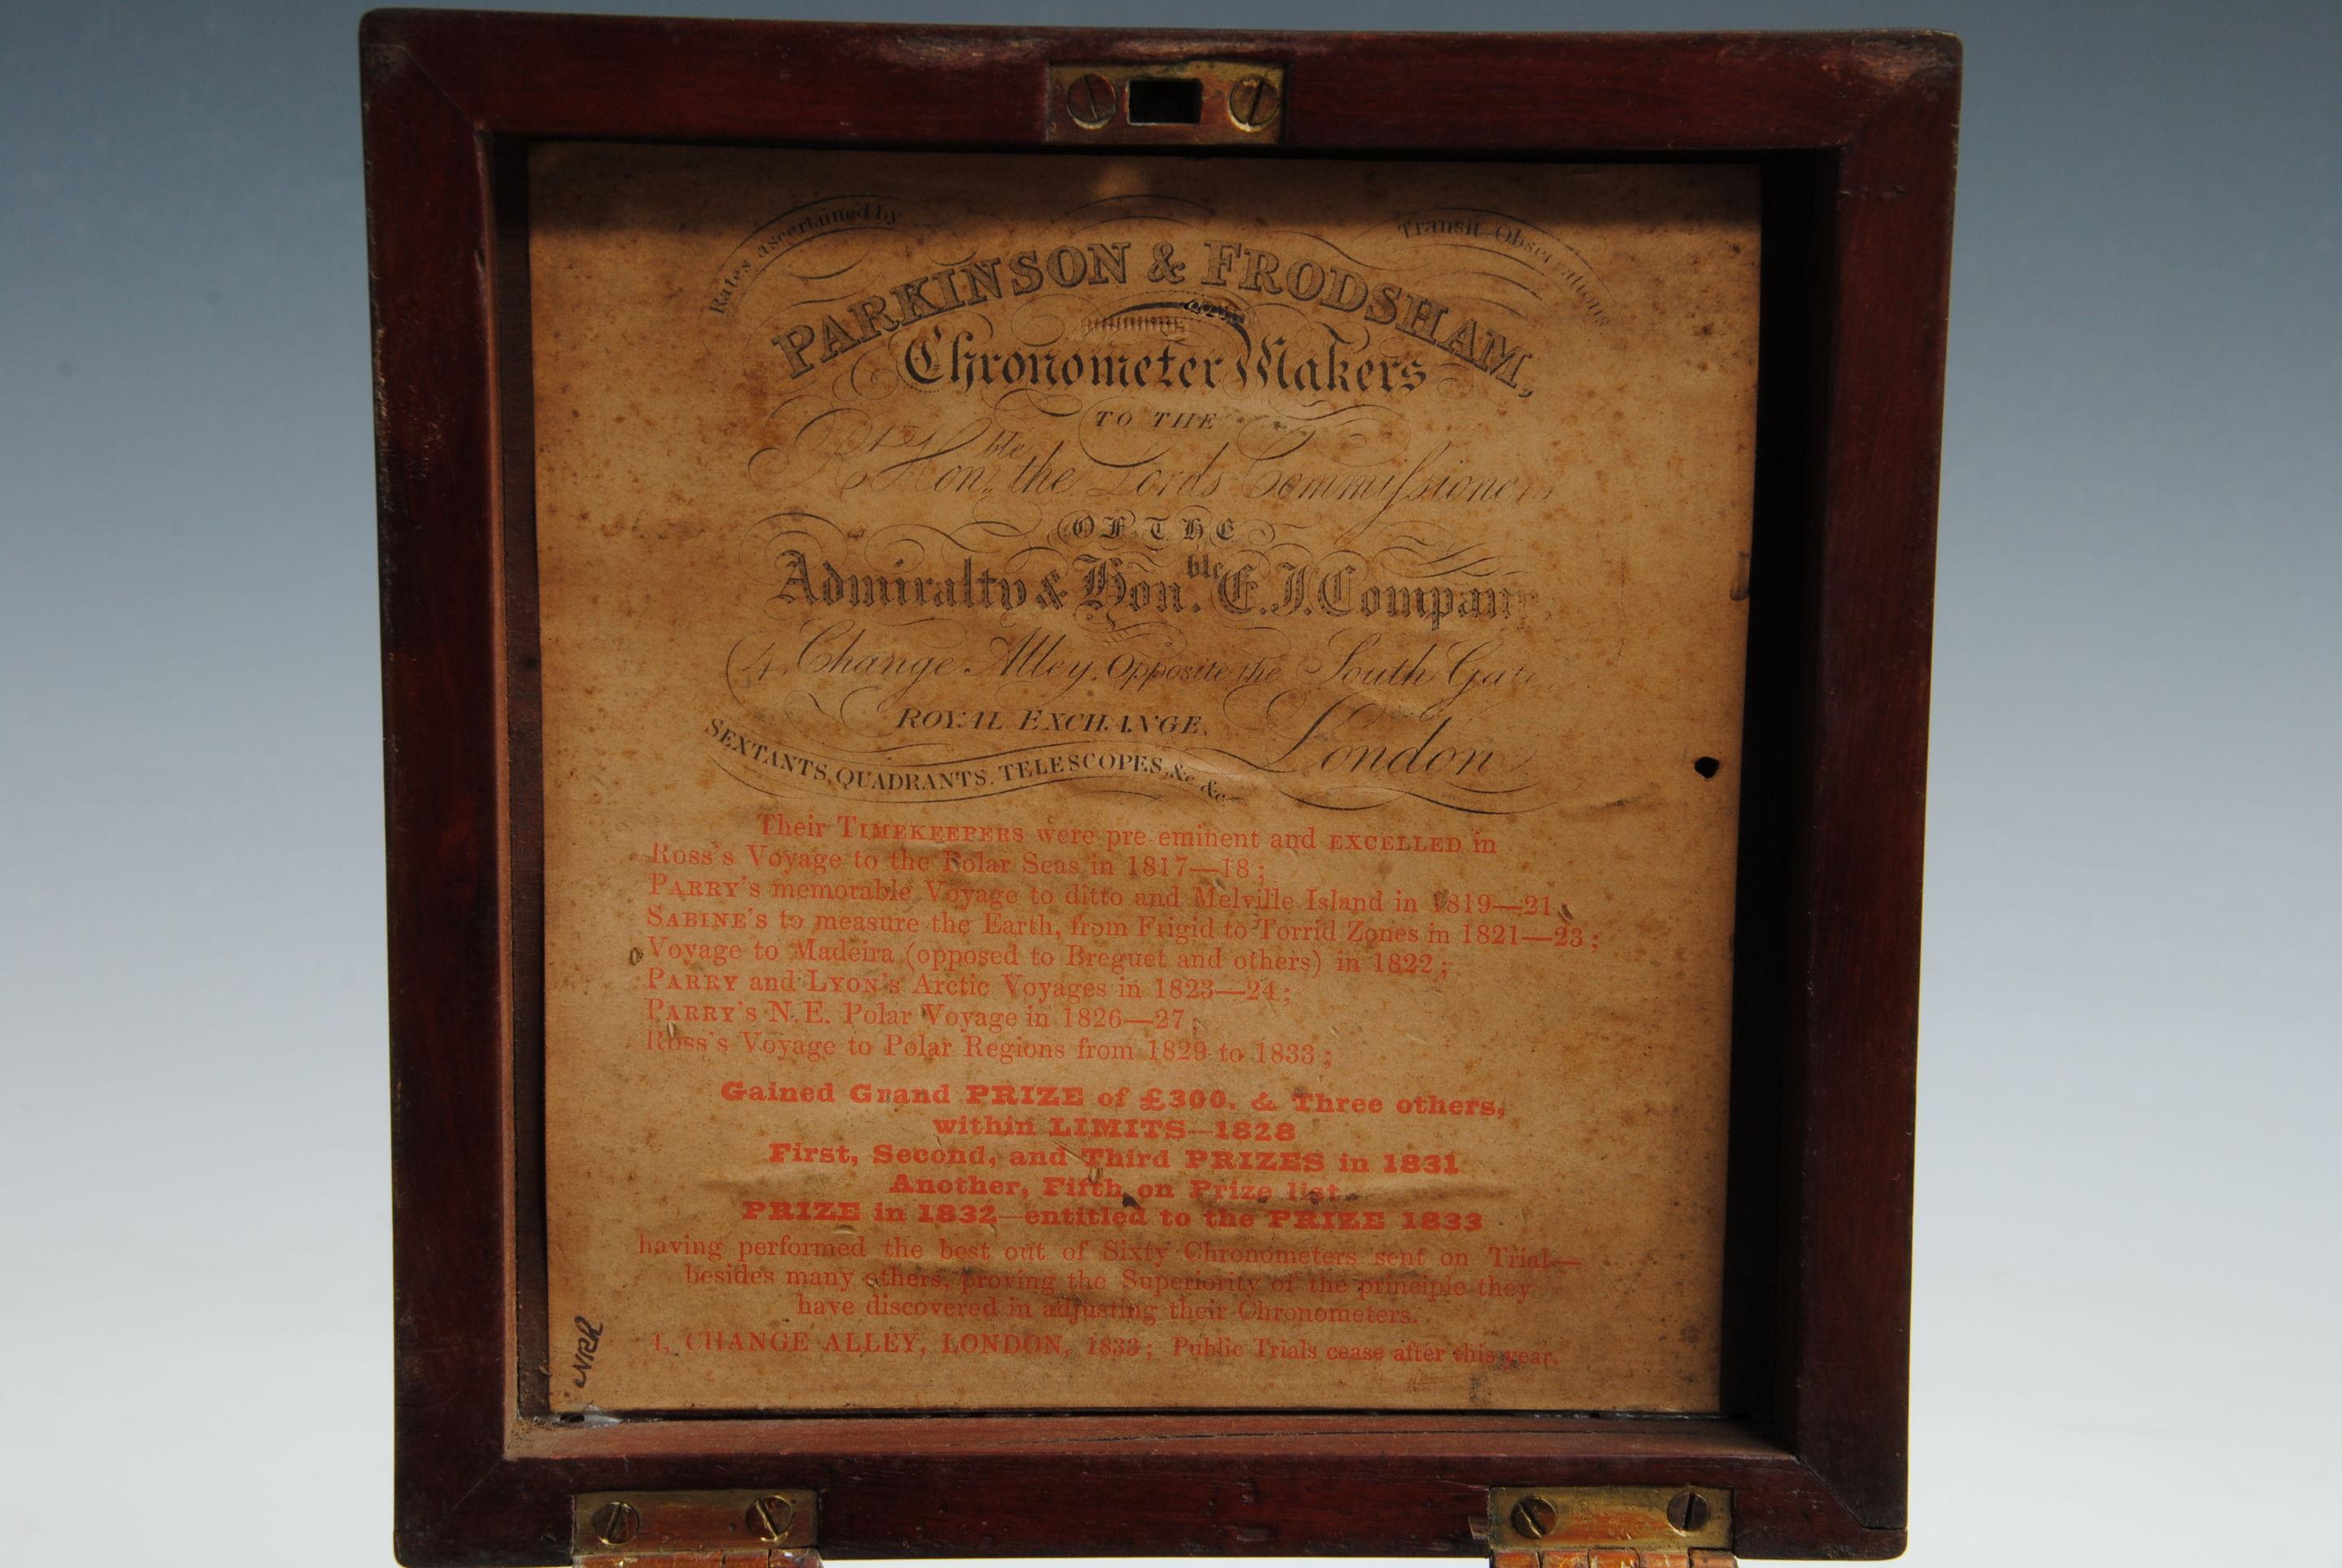 Rates ascertained by
Transit Observations
PARKINSON & FRODSHAM,
Chronometer Makers
TO THE
Rt. Honble. the Lords Commissioners
OF THE
Admiralty & Honble. E.I. Company.
4, Change Alley, Opposite the South Gate
ROYAL EXCHANGE, London
SEXTANTS, QUADRANTS, TELESCOPES, &c &c
Their TIMEKEEPERS were pre eminent and EXCELLED in
Ross's Voyage to the Polar Seas in 1817—18;
PARRY's memorable Voyage to ditto and Melville Island in 1819—21;
SABINE'S to measure the Earth, from Frigid to Torrid Zones in 1821—23;
Voyage to Madeira (opposed to Breguet and others) in 1822;
PARRY and LYON's Arctic Voyages in 1823—24;
PARRY'S N. E. Polar Voyage in 1826—27;
Ross's Voyage to Polar Regions from 1829 to 1833;
Gained Grand PRIZE of £300. & Three others,
within LIMITS—1828
First, Second, and Third PRIZES in 1831
Another, Fifth on Prize list.
PRIZE in 1832—entitled to the PRIZE 1833
having performed the best out of Sixty Chronometers sent on Trial—
besides many others, proving the Superiority of the principle they
have discovered in adjusting their Chronometers.
4, CHANGE ALLEY, LONDON, 1833; Public Trials cease after this year.